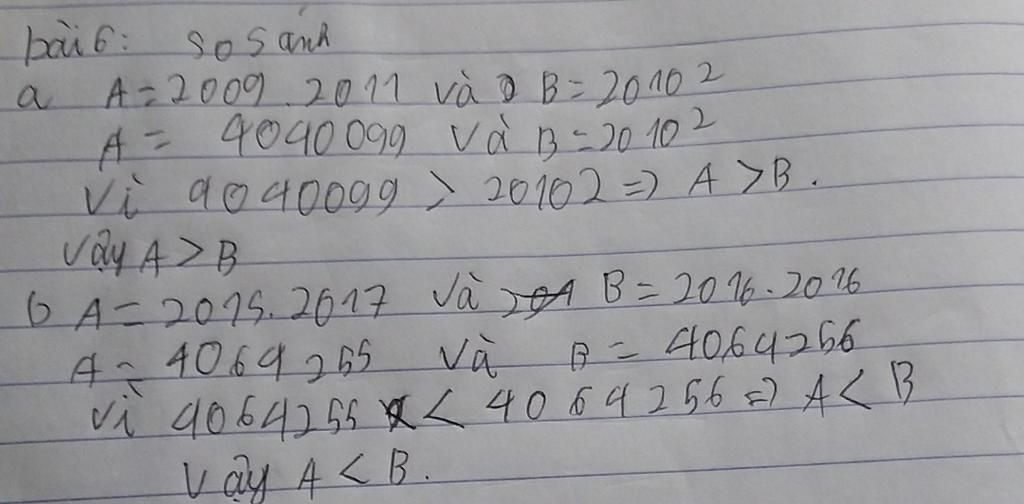 bài 6: so sánh
a A = 2009 . 2011 và B = 2010²
A = 4040099 và B = 2010²
Vì 4040099 > 20102 => A > B.
Vậy A > B
b A = 2015. 2017 và B = 2016. 2016
A = 4064255 Và B = 4064256
Vì 4064255 < 4064256 => A < B
Vậy A < B.